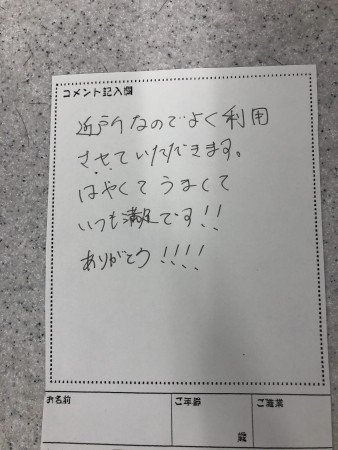 コメント記入欄
近所なのでよく利用
させていただきます。
はやくてうまくて
いつも満足です!!
ありがとう!!!!
お名前
ご年齢
ご職業
歳